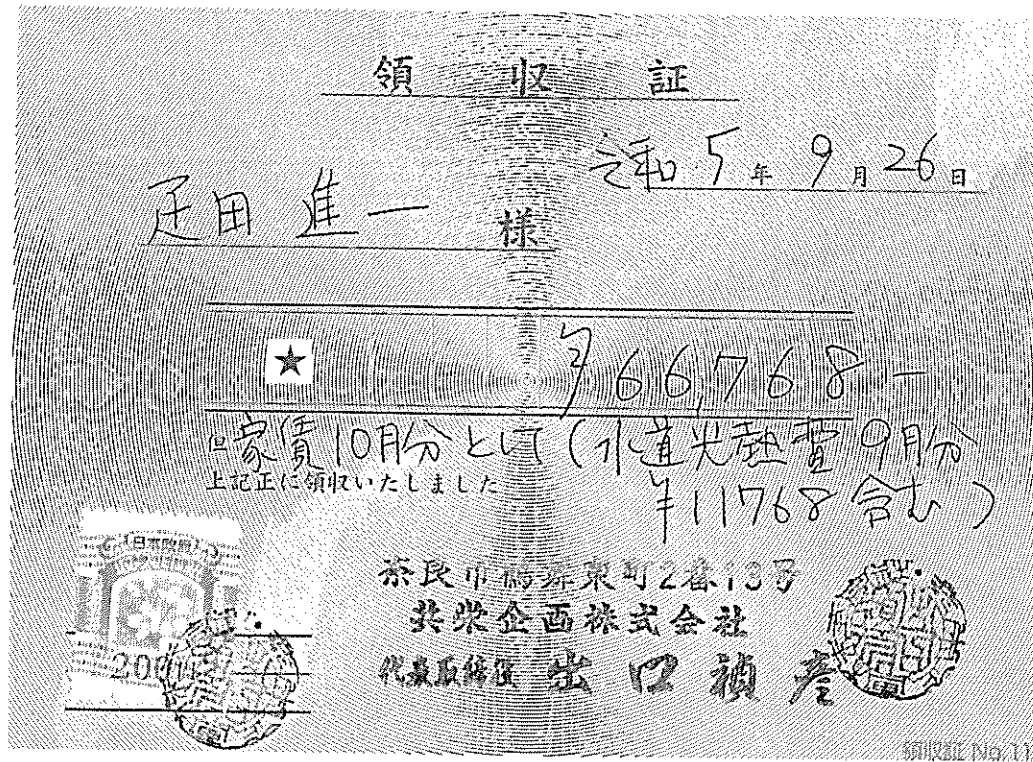 領収証
令和5年9月26日
疋田進一 様
★ ¥66,768-
但家賃10月分として(水道光熱費9月分
上記正に領収いたしました
¥11768含む)
日本政府
200
奈良市
東町2番13号
共栄企画株式会社
代表取締役 出口禎彦
領収証 No.11